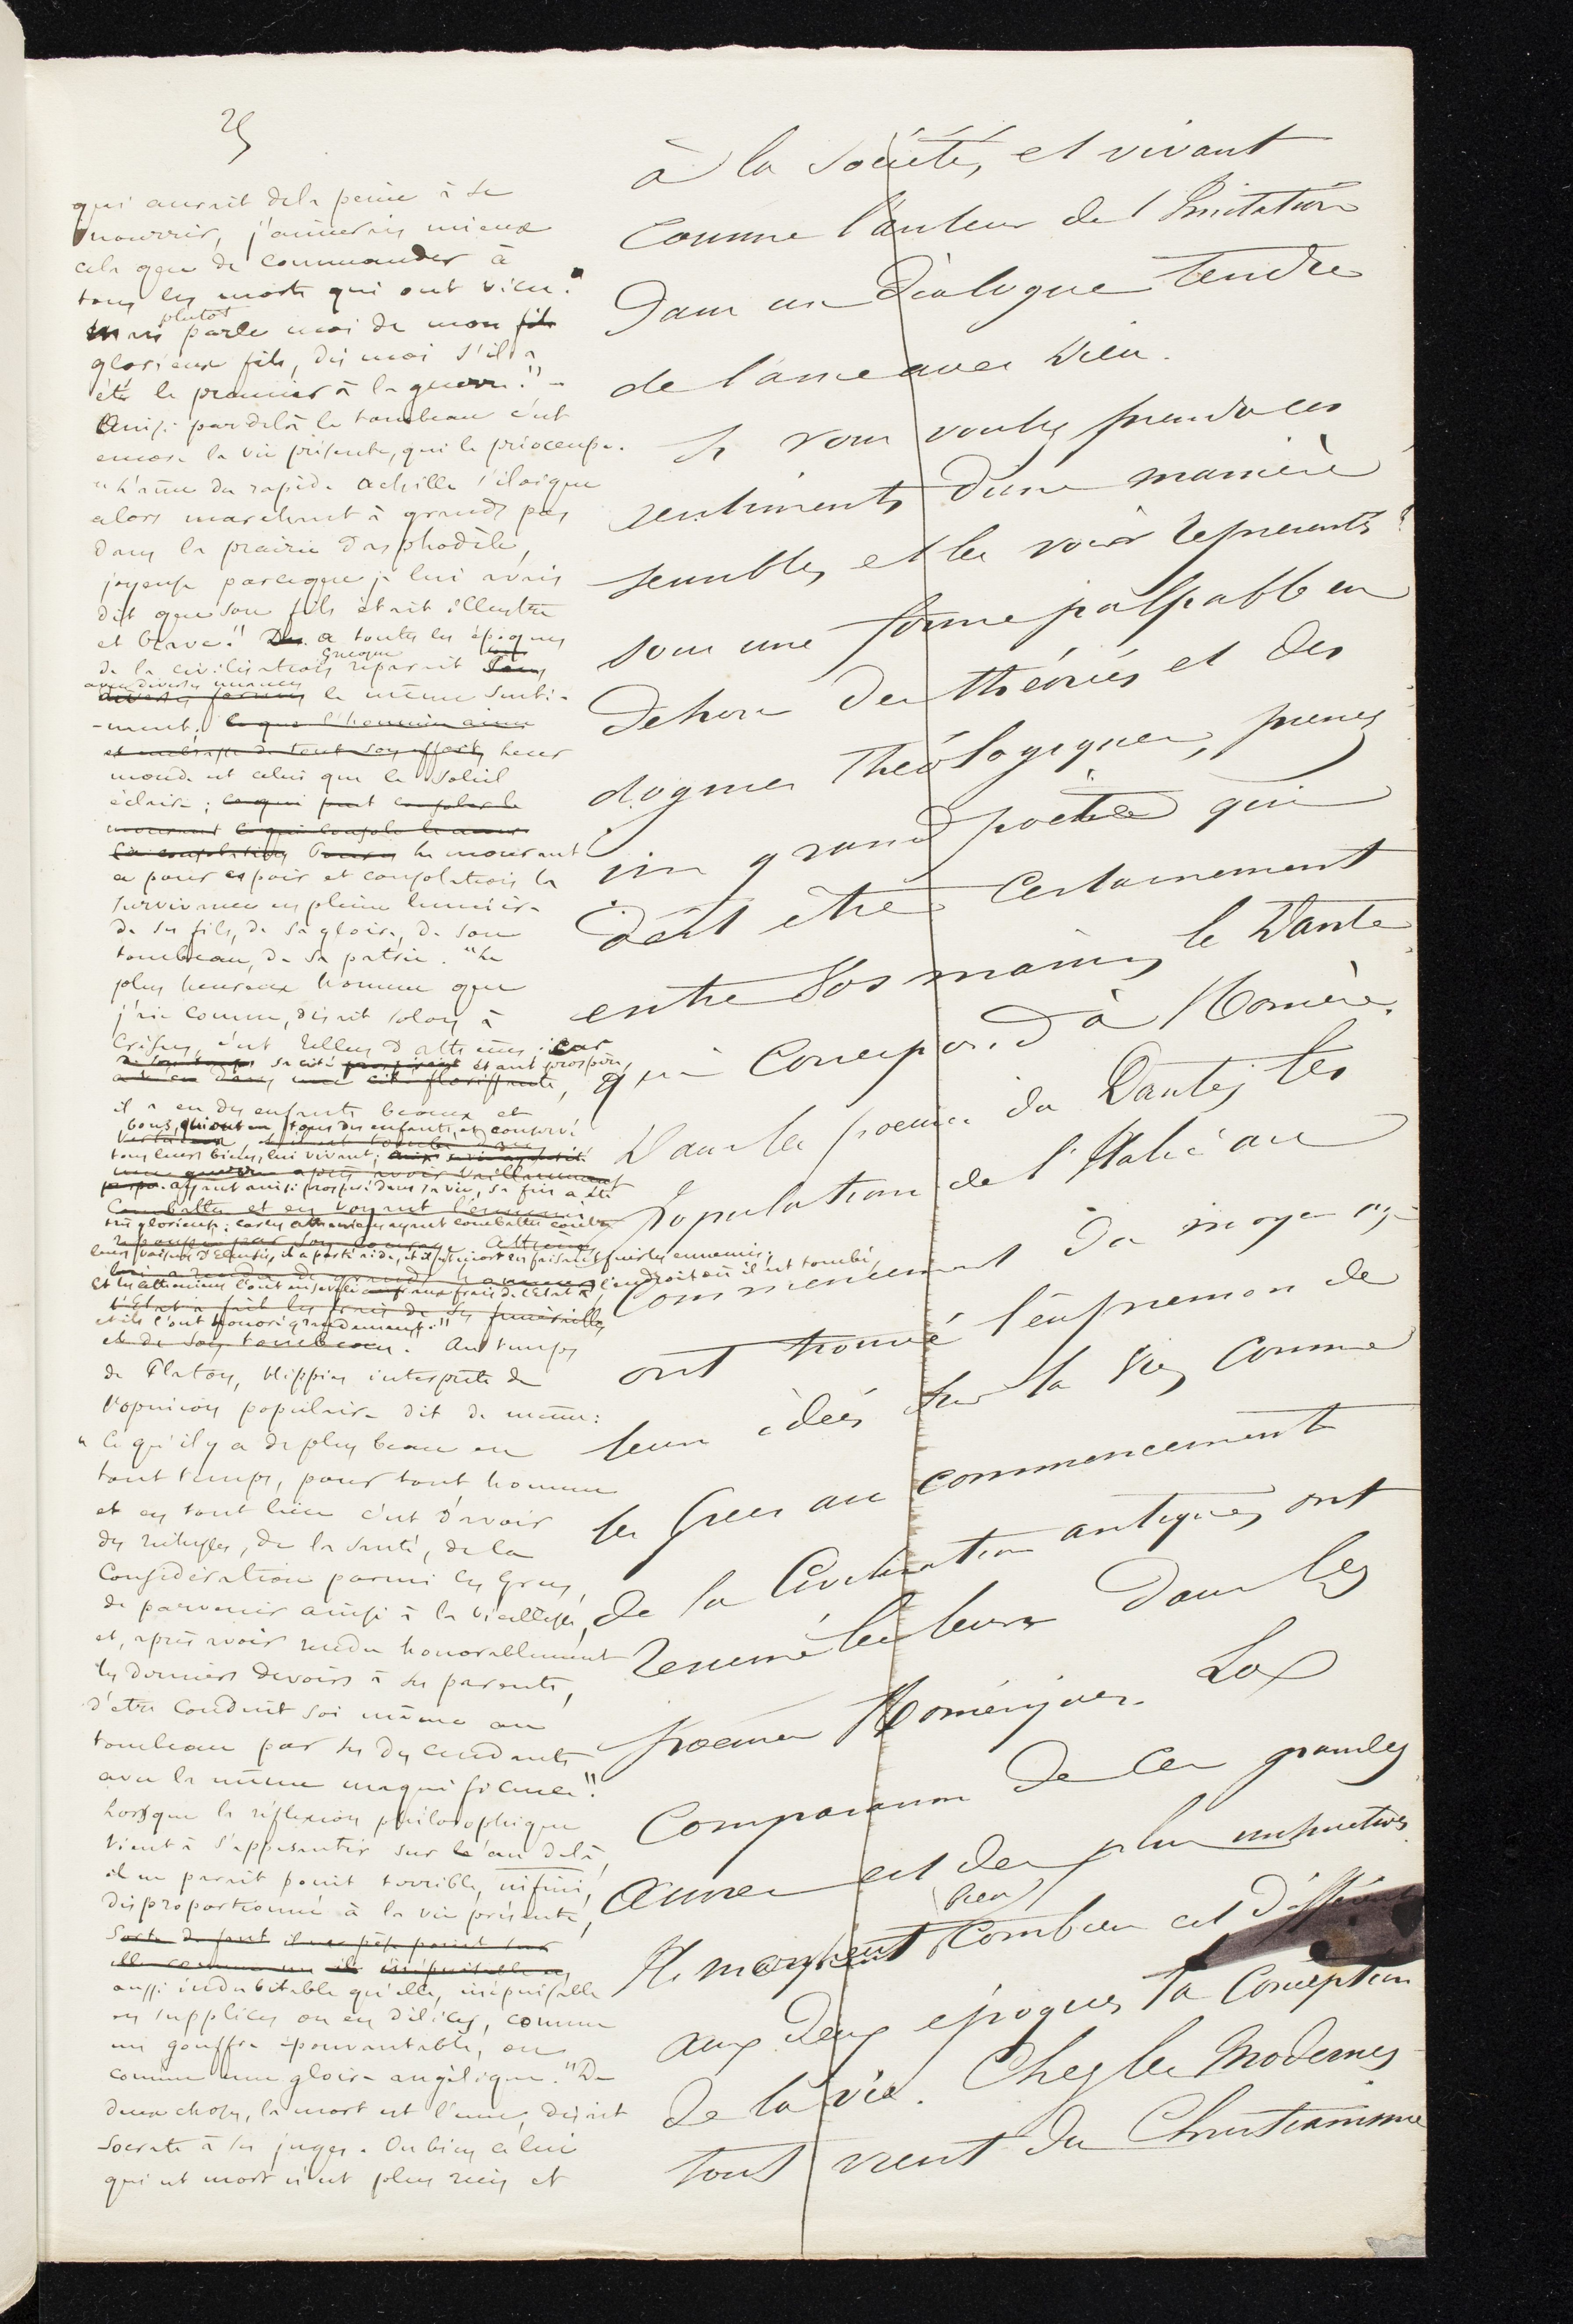 25
qui aurait de la peine à se
nourrir, j'aimerais mieux
cela que de commander à
tous les morts qui ont vécu.
plutôt
mais parle moi de mon fils
glorieux fils, dis moi s'il a
été le premier à la guerre." -
Ainsi par delà le tombeau c'est
encore la vie présente, qui le préoccupe.
"L'âme du rapide Achille s'éloigna
alors marchant à grands pas
dans la prairie d'asphodèle,
joyeuse parceque je lui avais
dit que son fils était illustre
et brave." A toutes les époques
grecque
de la civilisation reparait sous
avec diverses nuances
diverses formes le même senti-
-ment, ce que l'homme aime
et embrasse de tout son effort, leur
monde est celui que le soleil
éclaire ; ce qui peut consoler le
mourant ce qui console
la consolation le mourant
a pour espoir et consolation la
survivance en pleine lumière
de ses fils, de sa gloire, de son
tombeau, de sa patrie. "Le
plus heureux homme que
j'aie connu, disait Solon à
Crésus, c'est Tellus d'Athènes : car
sa cité étant prospère,
a vécu dans une cité florissante,
il a eu des enfants beaux et
bons, qui ont eu tous des enfants, et conservé
tous leurs biens, lui vivant ;
une guerre après avoir vaillamment
ayant ainsi prospéré dans sa vie, sa fin a été
combattu et en voyant l'ennemi
très glorieuse : car les Athéniens ayant combattu contre
repoussé par son courage. Athènes
leurs voisins d'Eleusis, il a porté aide, et il est mort en faisant fuir les ennemis ;
et les Athéniens l'ont enseveli aux frais de l'Etat à l'endroit où il est tombé,
l'Etat a fait les frais de ses funérailles
et ils l'ont honoré grandement."
et de son tombeau. Au temps
de Platon, Hippias interprète de
l'opinion populaire dit de même :
"Ce qu'il y a de plus beau en
tout temps, pour tout homme
et en tout lieu c'est d'avoir
des richesses, de la santé, de la
considération parmi les Grecs,
de parvenir ainsi à la vieillesse,
et, après avoir rendu honorablement
les derniers devoirs à ses parents,
d'être conduit soi même au
tombeau par ses descendants
avec la même magnificence."
Lorsque la réflexion philosophique
vient à s'appesantir sur l'au delà,
il ne parait point terrible, infini,
disproportionné à la vie présente,
il ne pèse point sur
elle comme un
aussi indubitable qu'elle, inépuisable
en supplices ou en délices, comme
un gouffre épouvantable, ou
comme une gloire angélique. "De
deux choses, la mort est l'une, disait
Socrate à ses juges. Ou bien celui
qui est mort n'est plus rien et
à la société, et vivant
comme l'auteur de l'Imitation
dans un dialogue tendre
de l'âme avec Dieu.
Si vous voulez prendre ces
sentiments d'une manière
sensible, et les voir représentés
sous une forme palpable en
dehors des théories et des
dogmes théologiques, prenez
un grand poète qui
doit être certainement
entre vos mains, le Dante
qui correspond à Homère.
Dans les poèmes du Dante, les
populations de l'Italie au
commencement du moyen age
ont trouvé l'expression de
leurs idées sur la vie, comme
les Grecs au commencement
de la Civilisation antique, ont
résumé les leurs dans les
poèmes Homériques. La
Comparaison de ces grandes
Œuvres est des plus instructives.
bien
Ils marquent combien est différente
aux deux époques la Conception
de la vie. Chez les Modernes
tout vient du Christianisme